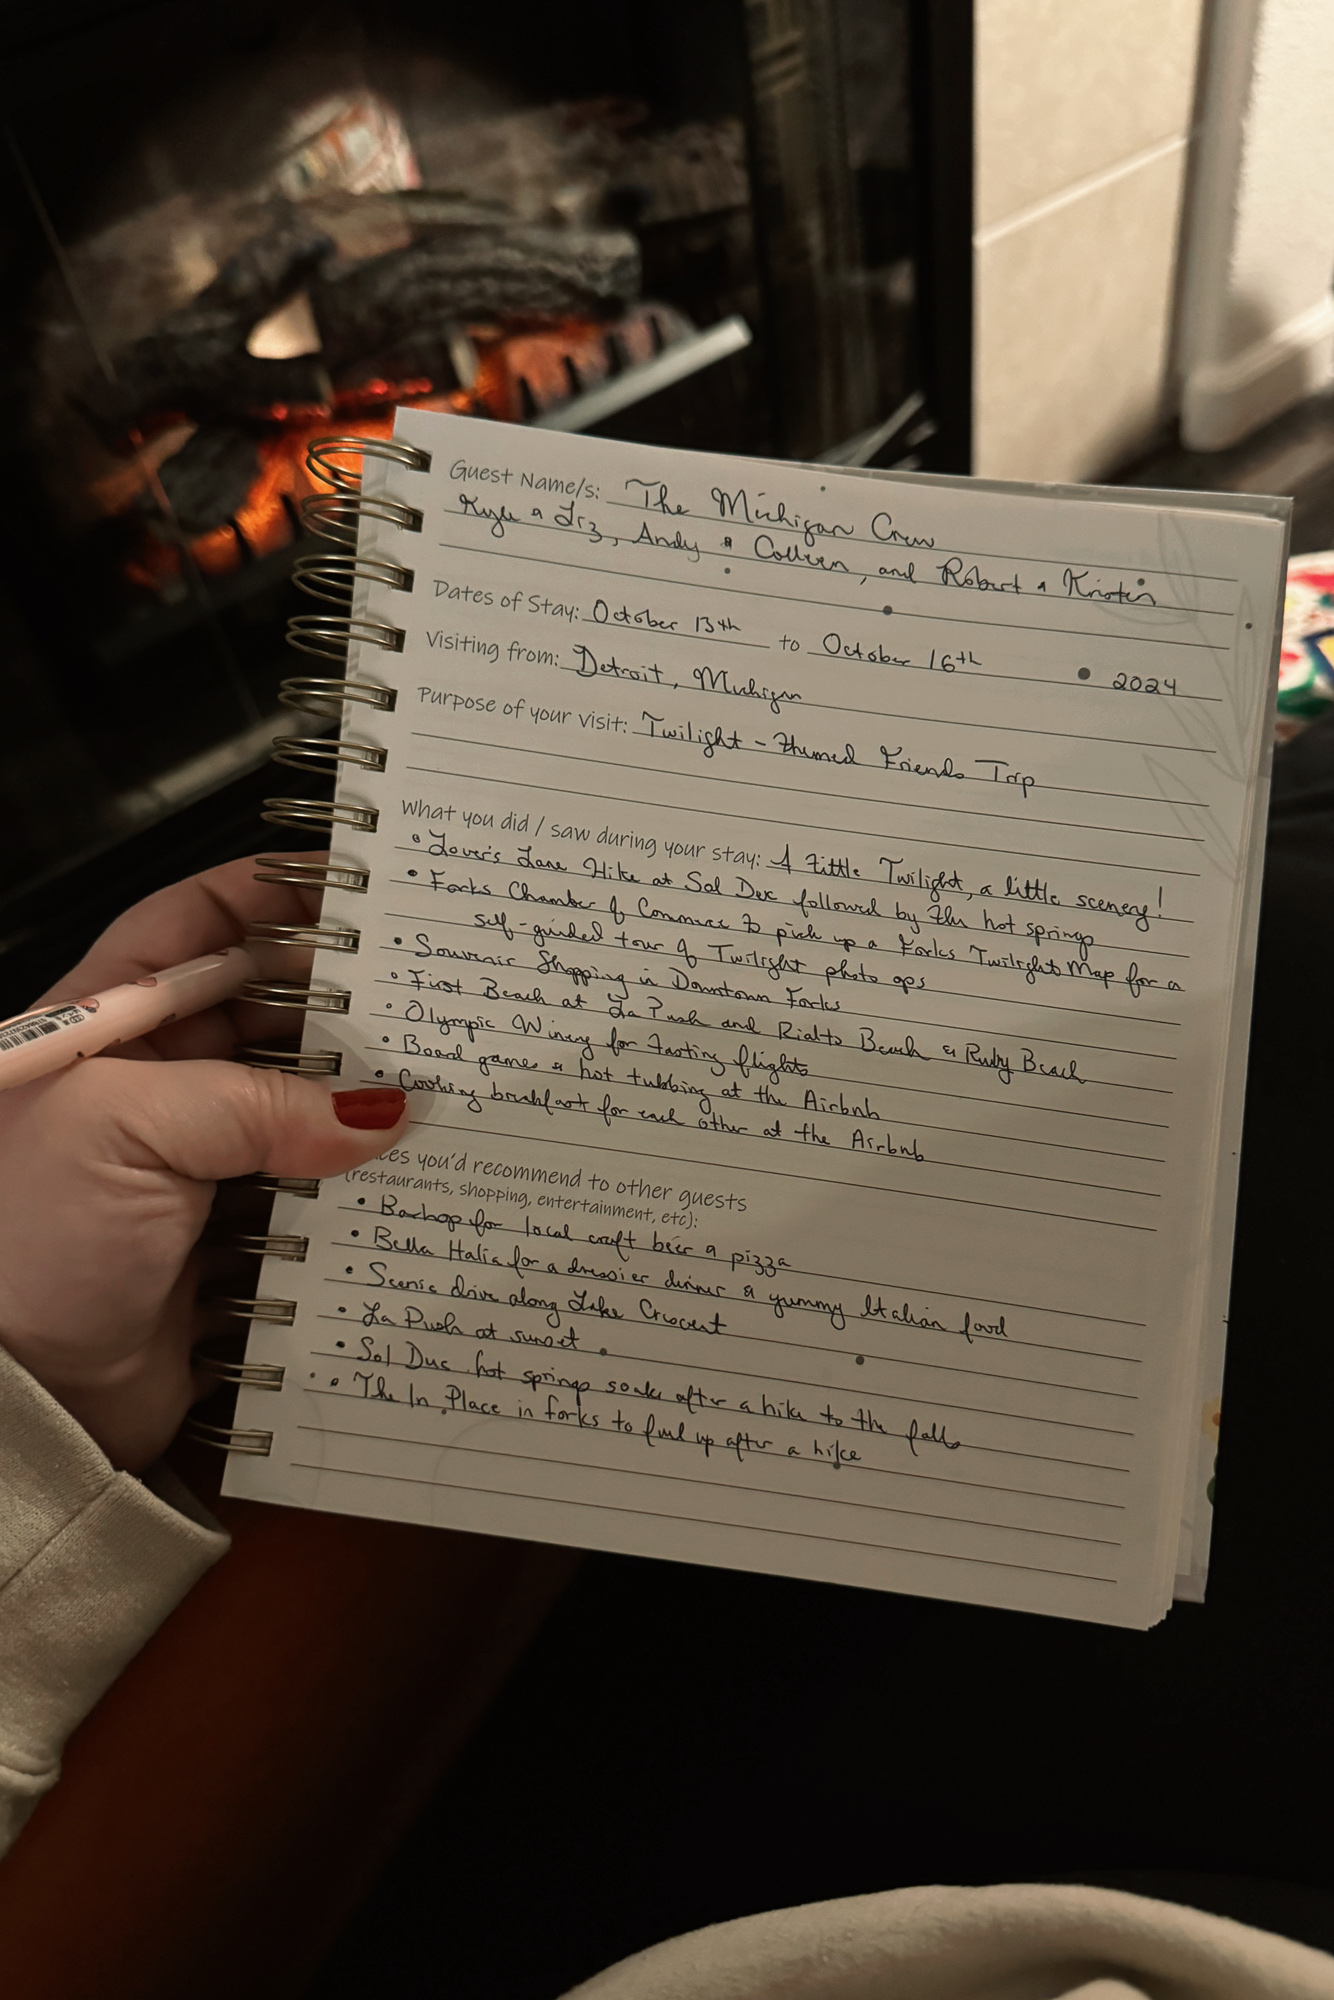 Guest Name/s: The Michigan Crew
Kyle & Liz, Andy & Colleen, and Robert & Kristin
Dates of Stay: October 13th to October 16th 2024
Visiting from: Detroit, Michigan
Purpose of your visit: Twilight-themed Friends Trip
What you did / saw during your stay: A little Twilight, a little scenery!
• Lover's Lane Hike at Sol Duc followed by the hot springs
• Forks Chamber of Commerce to pick up a Forks Twilight Map for a
self-guided tour of Twilight photo ops
• Souvenir Shopping in Downtown Forks
• First Beach at La Push and Rialto Beach & Ruby Beach
• Olympic Winery for tasting flights
• Board games & hot tubbing at the Airbnb
• Cooking breakfast for each other at the Airbnb
you'd recommend to other guests
(restaurants, shopping, entertainment, etc):
• Barhop for local craft beer & pizza
• Bella Italia for a dressier dinner & yummy Italian food
• Scenic drive along Lake Crescent
• La Push at sunset
• Sol Duc hot springs soak after a hike to the falls
• The In Place in forks to fuel up after a hike